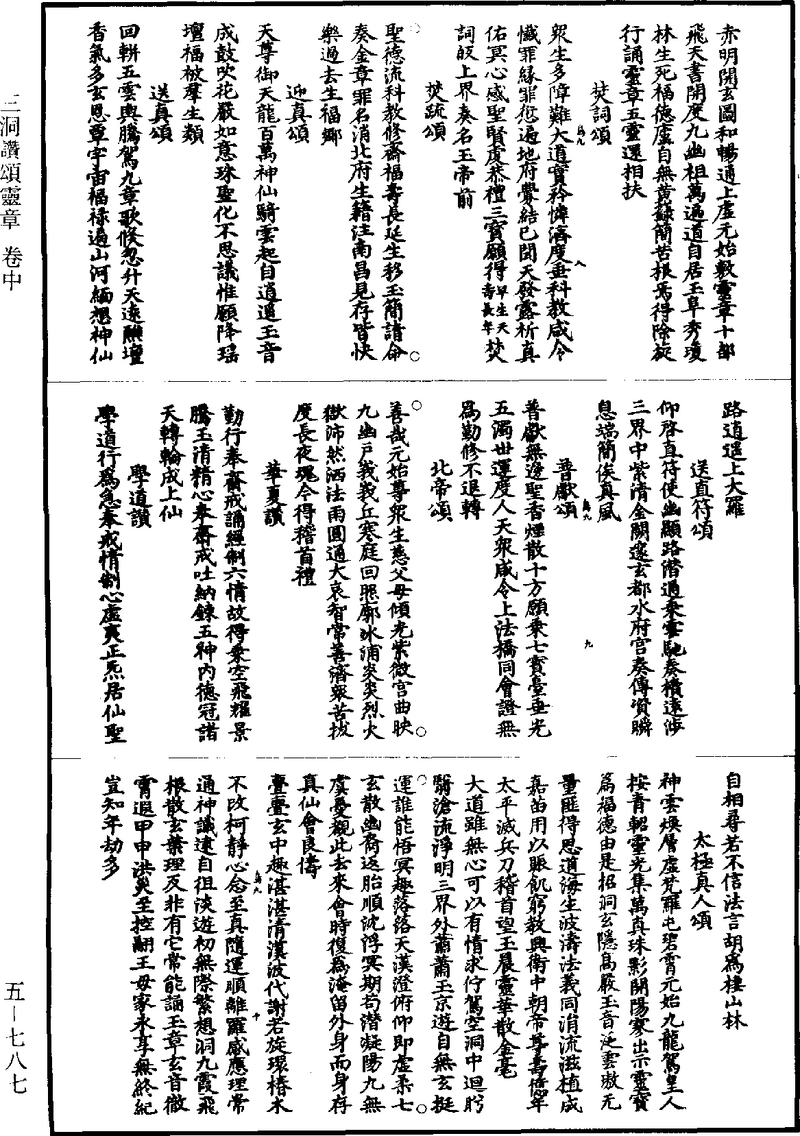 赤明開玄圖和暢通上虛元始敷靈章十部
飛天書開度九幽祖萬遍道自居玉阜秀瓊
林生死福德虛自無黃籙簡苦根焉得除旋
行誦靈章五靈還相扶
焚詞頌
眾生多障難大道實矜憐濟度垂科教咸令
懺罪緣罪愆遍地府釁結已聞天發露祈真
佑冥心感聖賢虔恭禮三寶願得早生天壽長年焚
詞皈上界奏名玉帝前
焚疏頌
聖德流科教修齋福壽長延生移玉簡請命
奏金章罪名消北府生籍注南昌見存皆快
樂過去生福鄉
迎真頌
天尊御天龍百萬神仙騎雲起自逍遥玉音
成鼓吹花嚴如意珠聖化不思議惟願降瑤
壇福被羣生類
送真頌
回軿五雲輿騰駕九章歌倏忽升天遠醮壇
香氣多玄恩覃宇宙福祿遍山河緬想神仙
路逍遥上大羅
送直符頌
仰啓直符使幽顯路階通乘雲馳奏櫝遠涉
三界中紫清金闕邃玄都水府宮奏傳湏瞬
息端簡俟真風
普獻頌
普獻無邊聖香煙散十方願乘七寶臺垂光
五濁世運度人天眾咸令上法橋同會證無
為勤修不退轉
北帝頌
善哉元始尊眾生慈父母傾光紫微宮曲映
九幽戶義義丘寒庭回照廓冰浦炎炎烈火
獄沛然洒法雨圓通大哀智常善濟衆苦拔
度長夜魂今得稽首禮
華夏讚
勤行奉齋戒誦經制六情故得乘空飛耀景
騰玉清精心奉齋戒吐納鍊五神内德冠諸
天轉輪成上仙
學道讚
學道行為急奉戒情制心虛夷正炁居仙聖
自相尋若不信法言胡為棲山林
太極真人頌
神雲煥層虛梵羅屯碧霄元始九龍駕皇人
按青軺靈光集萬真珠影開陽寮出示靈寶
篇福德由是招洞玄隱高嚴玉音泛雲璈无
量匪得思道海生波濤法義同涓流滋植成
嘉苗用以賑飢窮教興衛中朝帝尊壽億年
太平滅兵刀稽首望玉晨靈華散金毫
大道雖無心可以有情求佇駕空洞中迴眄
翳滄流淨明三界外蕭蕭玉京遊自無玄挺
運誰能悟冥趣落落天漢澄俯仰即虛柔七
玄散幽裔返胎順沈浮冥期苟潛凝陽九無
虞憂觀此去來會時復為淹留外身而身存
真仙會良儔
亹亹玄中趣湛湛清漢波代謝若旋環椿木
不改柯靜心念至真隨運順離羅感應理常
通神識遠自徂淡遊初無際繁想洞九霞飛
根散玄葉理反非有它常能誦玉章玄音徹
霄遐甲申洪災至控翮王母家永享無終紀
豈知年劫多
三洞讚頌靈章 卷中
五—七八七